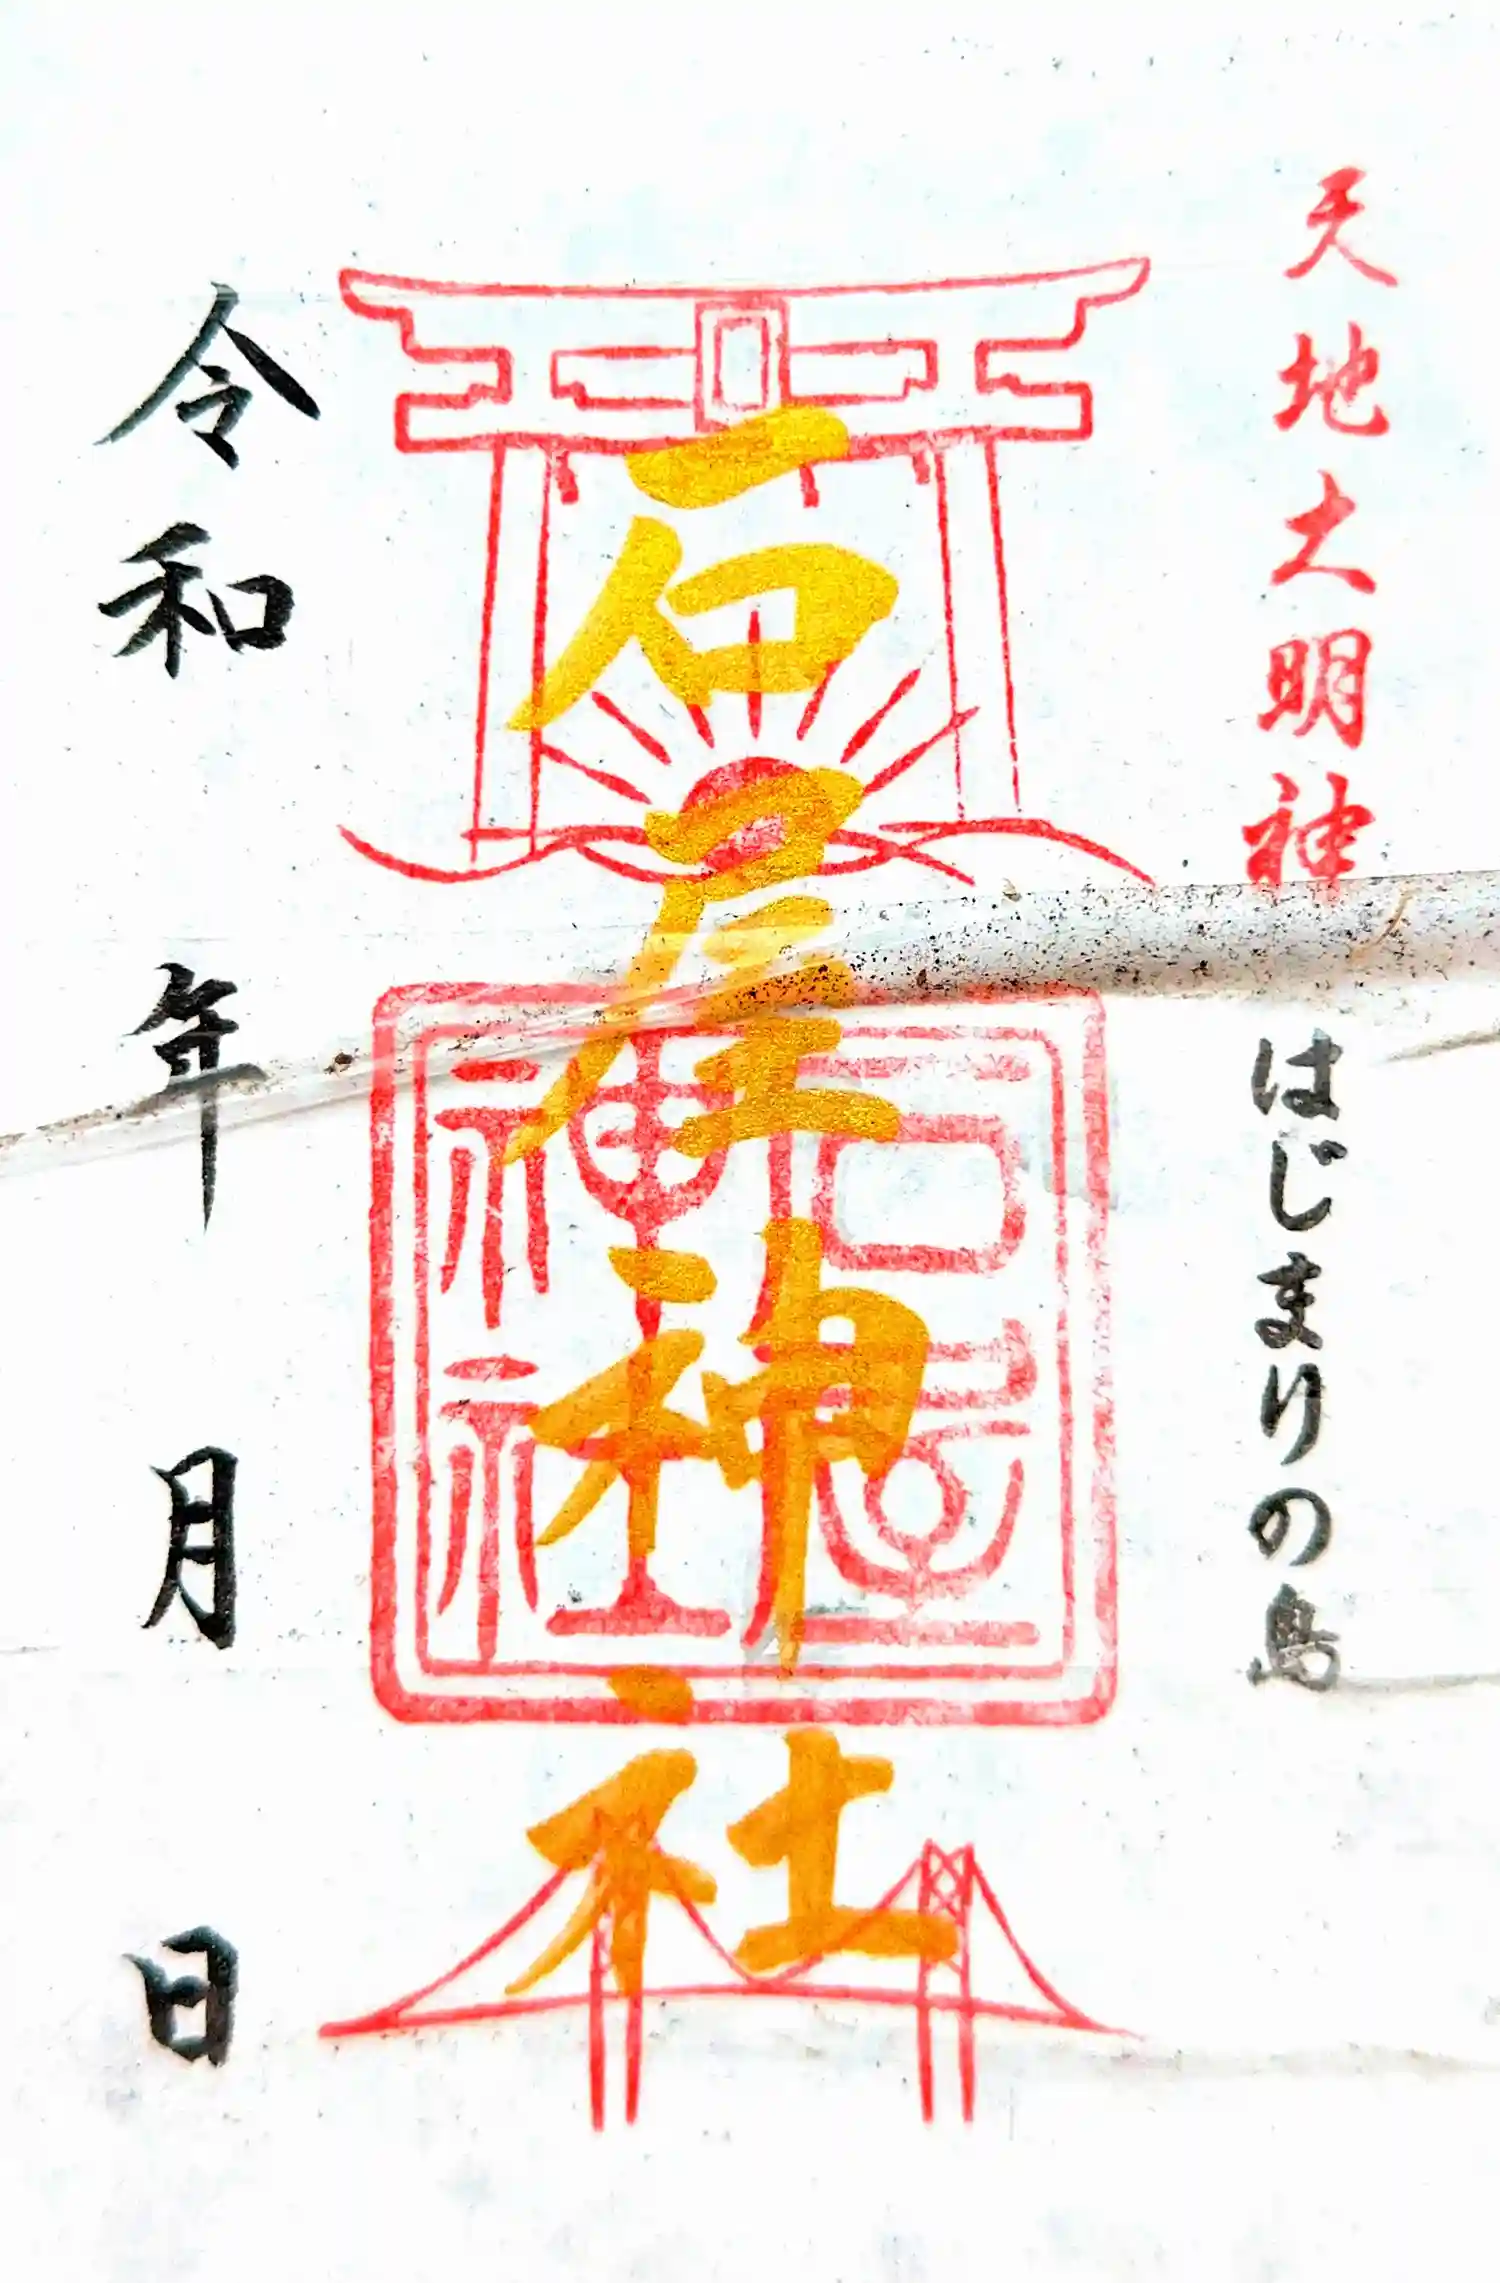 天地大明神
はじまりの島
石屋神社
石屋神社
令和 年 月 日